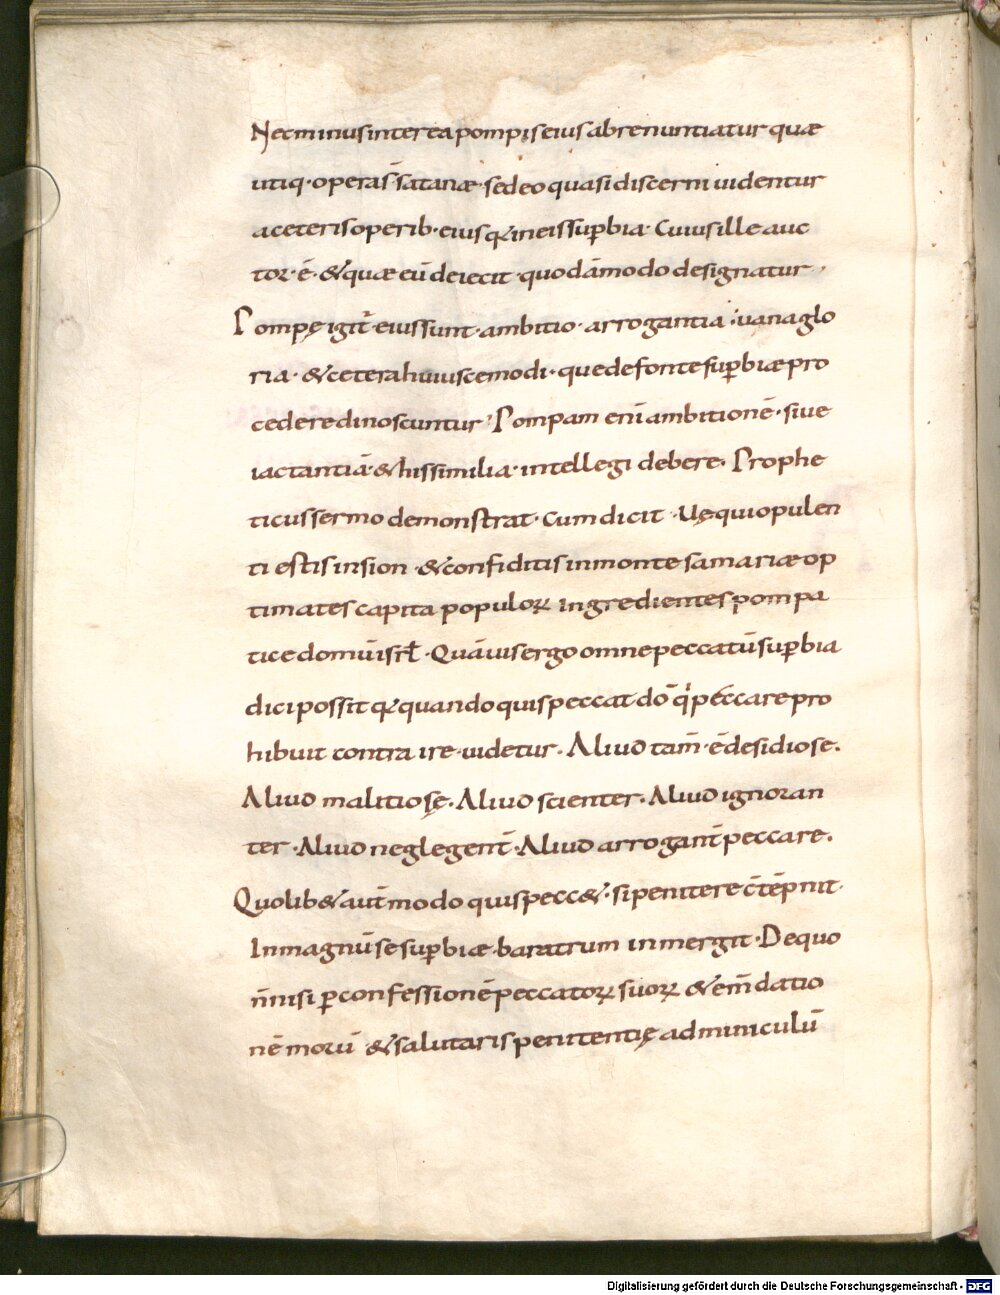 Nec minus interea pompis eius abrenuntiatur quæ
utiq· operas̄ satanæ· sed eo quasi discerni uidentur
a ceteris operib· eius qꝛ in eis suꝑbia· Cuius ille auc
tor· ē· & quæ eū deiecit· quodāmodo designatur·
Pompę igit̄ eius sunt· ambitio· arrogantia· uana glo
ria· & cetera huiuscemodi· que de fonte suꝑbiæ pro
cedere dinoscuntur· Pompam eni̅ ambitionē· siue
iactantiā· & his similia· intellegi debere· Prophe
ticus sermo demonstrat· Cum dicit· Uę qui opulen
ti estis in sion· & confiditis in monte samariæ op
timates capita populoꝝ ingredientes pompa
tice domū isrł· Quāuis ergo omne peccatū suꝑbia
dici possit qꝛ quando quis peccat do̅ q̍ peccare pro
hibuit contra ire uidetur· Aliud tam̄· ē desidiose·
Aliud malitiosę· Aliud scienter· Aliud ignoran
ter· Aliud neglegent̄· Aliud arrogant̄ peccare·
Quolib& aut̄ modo quis pecc&· si penitere c̄tēpnit·
In magnū se suꝑbiæ baratrum inmergit· De quo
n̄ nisi ꝑ confessionē peccatoꝝ suoꝝ & em̄datio
nē morū & salutaris penitentię adminiculū
Digitalisierung gefördert durch die Deutsche Forschungsgemeinschaft - DFG